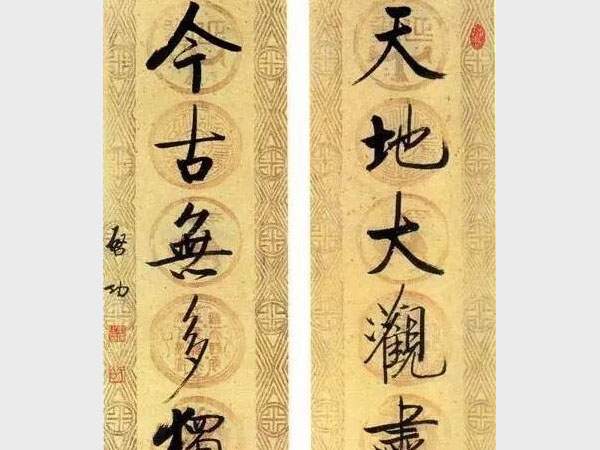 天地大觀盡
今古無多獨
啓功